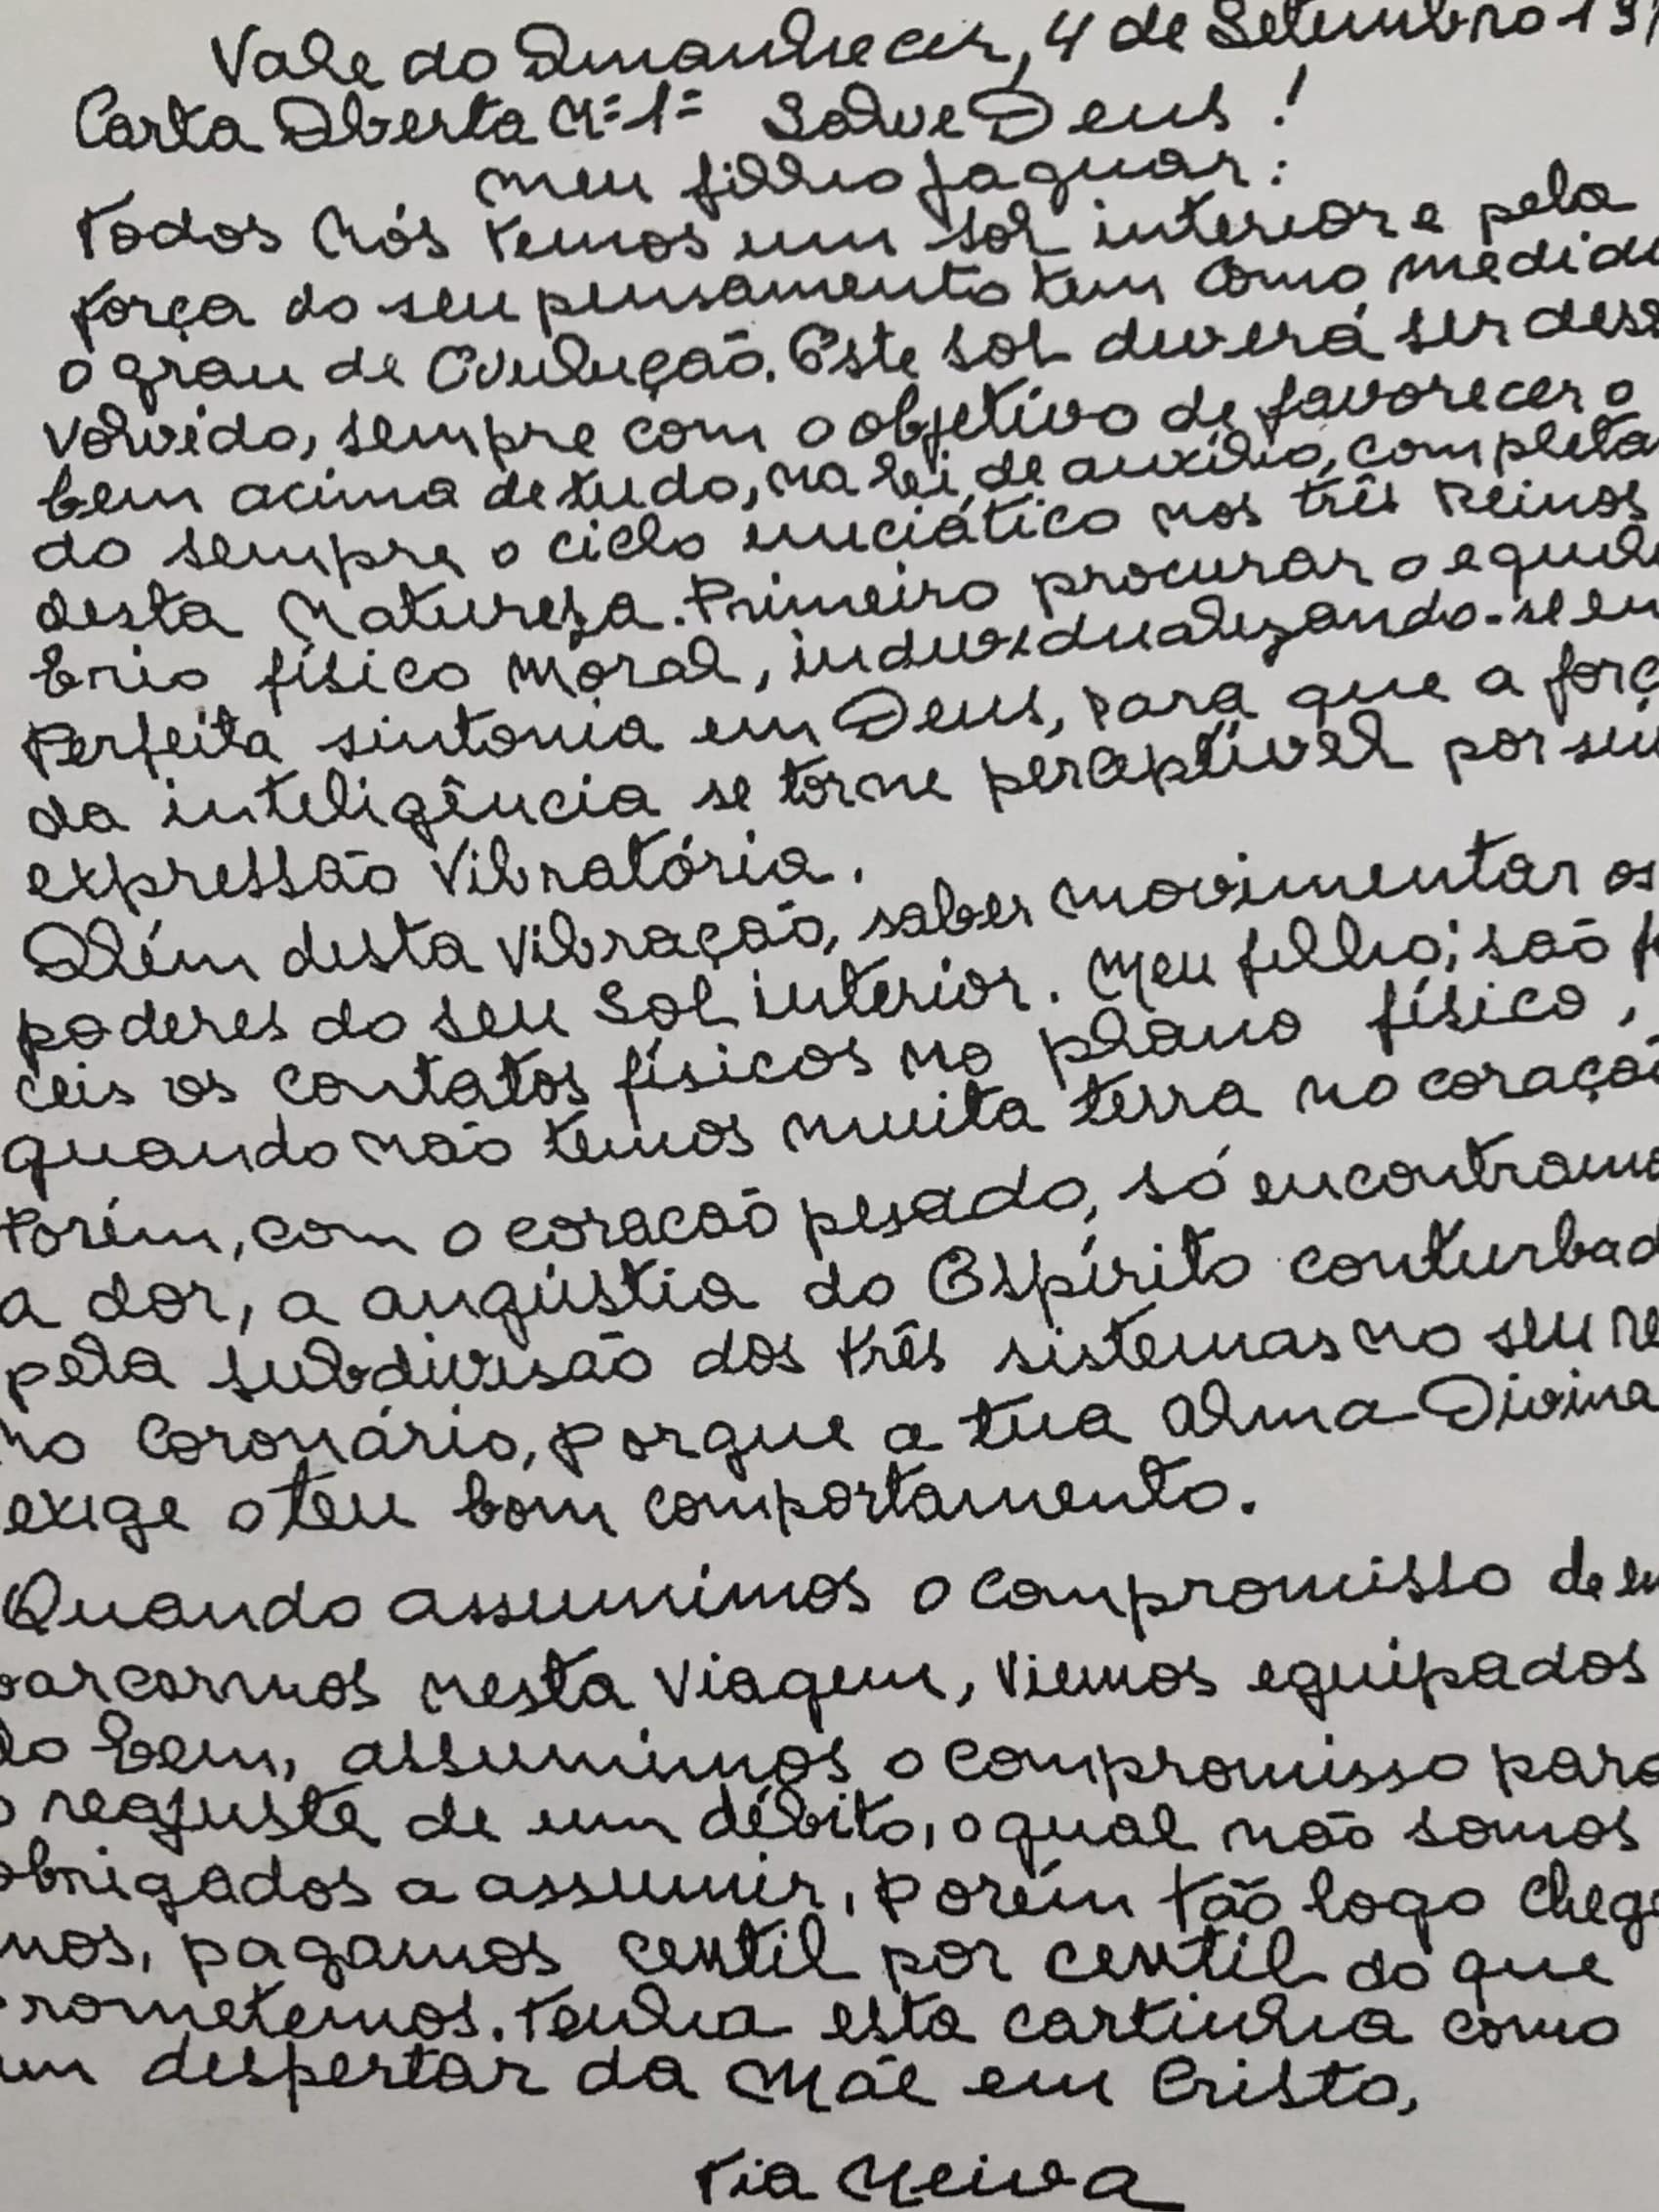 Vale do Amanhecer, 4 de Setembro 197
Carta Aberta Nº 1 = Salve Deus!
Meu filho Jaguar:
Todos nós temos um sol interior e pela
força do seu pensamento tem como medida
o grau de Evulução. Este sol deverá ser dese
volvido, sempre com o objetivo de favorecer o
bem acima de tudo, na lei de auxílio, completa
do sempre o ciclo iniciático nos três Reinos
desta Natureza. Primeiro procurar o equilí
brio físico moral, individualizando-se em
Perfeita sintonia em Deus, para que a forç
da inteligência se torne perceptível por sua
expressão Vibratória.
Além desta Vibração, saber movimentar os
poderes do seu Sol interior. Meu filho; são fá
ceis os contatos físicos no plano físico,
quando não temos muita terra no coração
Porém, com o coracão pesado, só encontramo
a dor, a angústia do Espírito conturbad
pela subdivisão dos três sistemas no seu re
no Coronário, porque a tua Alma Divina
exige o teu bom comportamento.
Quando assumimos o compromisso de em
barcarmos nesta Viagem, Viemos equipados
do bem, assumimos o compromisso para
o reajuste de um débito, o qual não somos
obrigados a assumir, porém tão logo chega
mos, pagamos ceitil por ceitil do que
prometemos. Tenha esta cartinha como
um despertar da Mãe em Cristo,
Tia Neiva